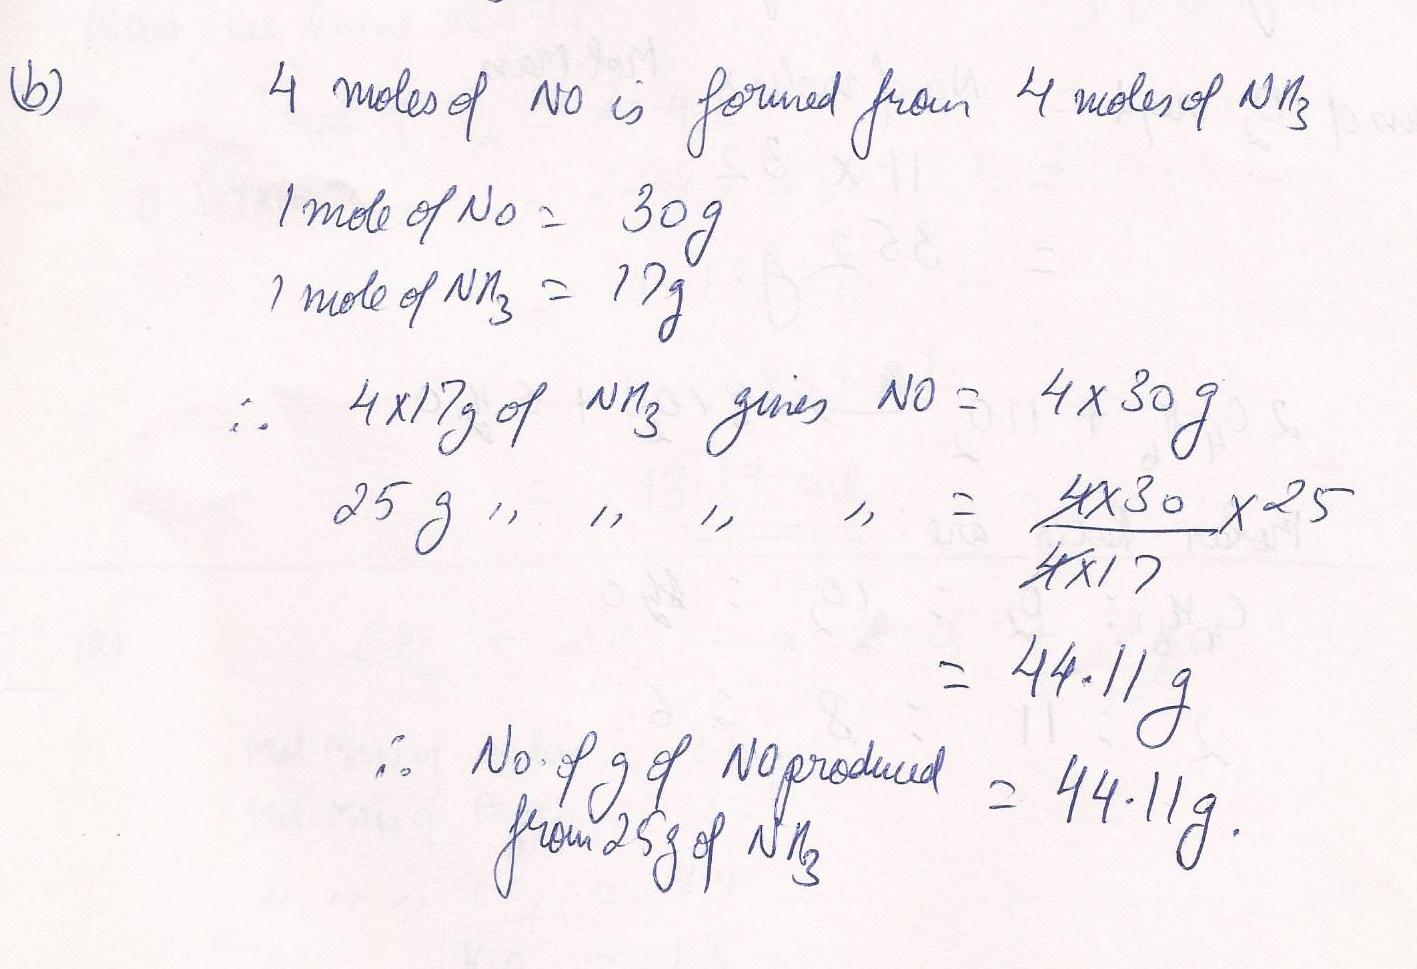 (b) 4 moles of NO is formed from 4 moles of NH3
1 mole of NO = 30g
1 mole of NH3 = 17g
∴ 4x17g of NH3 gives NO = 4x30g
25 g ,, ,, ,, ,, = 4x30 x 25
4x17
= 44.11 g
∴ No. of g of NO produced = 44.11g.
from 25g of NH3